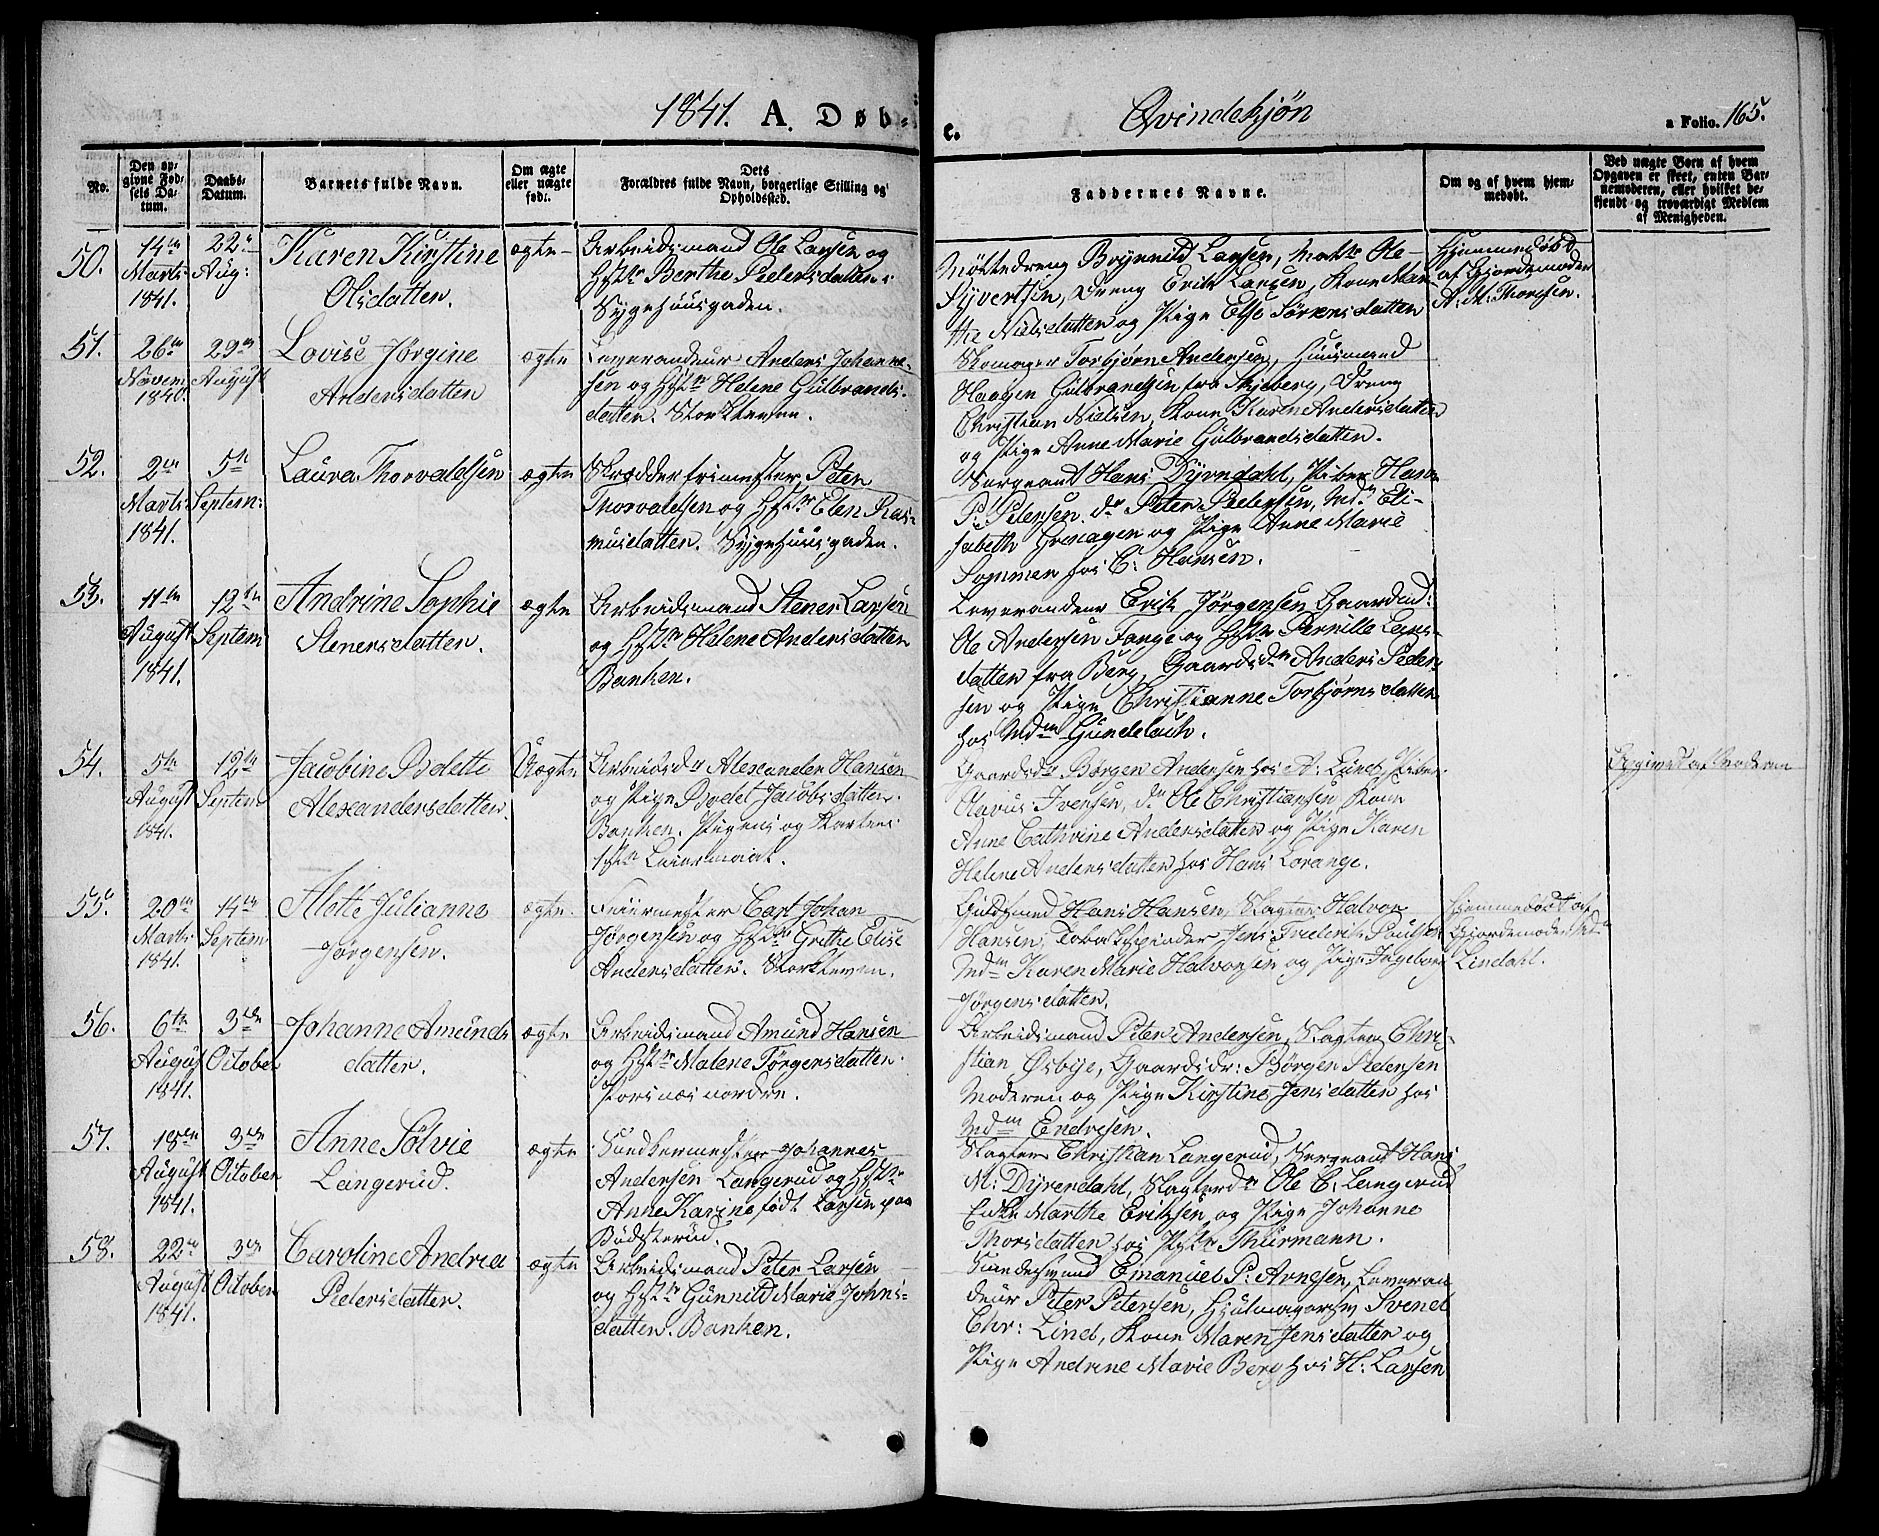 1841. A. Døb-
e. Qvindekjøn a Folio. 165.
No.
Den op-
givne Fød-
sels Da-
tum.
Daabs-
Datum.
Barnets fulde Navn.
Om ægte
eller uægte
født.
Dets
Forældres fulde Navn, borgerlige Stilling og
Opholdssted.
Faddernes Navne.
Om og af hvem hjem-
medøbt.
Ved uægte Børn af hvem
Opgaven er skeet, enten Bar-
nemoderen, eller hvilket be-
kjendt og troværdigt Medlem
af Menigheden.
50.
14de
Marts
1841.
22de
Aug:
Karen Kirstine
Olsdatten.
ægte
Arbeidsmand Ole Larsen og
Hst Berthe Pedersdatten:
Sygehuusgaden.
Dreng Brynnild Larsen, Ole
Syvertsen, Dreng Erik Larsen, Kone Mar-
the Nielsdatten og Pige Else Sørensdatten
Hjemmedøbd
af Gjordemoder
A. M. Thoresen.
51.
26de
Novem
1840.
29de
August
Lovise Jørgine
Andersdatten
ægte
Leverandeur Anders Johanne-
sen og Hst Helene Gulbrands-
datten. Storkleven.
Skomager Torbjørn Andersen, Huusmand
Haagen Gulbrandsen fra Skjeberg, Dreng
Christian Nielsen, Kone Karen Andersdatten
og Pige Anne Marie Gulbrandsdatten.
52.
2den
Marts
1841.
5te
Septem:
Laura Thorvaldsen
ægte
Skrædder frimester Peter
Thorvaldsen og Hst Elen Ras-
musdatten. Sygehuusgaden.
Sergeant Hans Dyrendahl, Hans
P. Petersen, do Peter Pedersen, Mdm Eli-
sabeth og Pige Anne Marie
hos C. Hansen.
53.
11te
August
1841.
12te
Septem
Andrine Sophie
Stenersdatten.
ægte
Arbeidsmand Stener Larsen
og Hst Helene Andersdatten
Banken.
Leverandeur Erik Jørgensen Gaardsd:
Ole Andersen Tange og Hst Pernille Lars-
datten fra Berg, Gaardsdr Anders Peder-
sen og Pige Christianne Torbjørnsdatten
hos Mdm Gundelach.
54.
5te
August
1841.
12te
Septem
Jacobine Bolette
Alexandersdatten.
Uægte
Arbeidsdr Alexander Hansen
og Pige Bodel Jacobsdatten.
Banken. Pigens og Karlens
1ste Leiermaal.
Gaardsdr Børgen Andersen hos A. Lund,
Olavus Ivensen, do Ole Christiansen, Kone
Anne Cathrine Andersdatten og Pige Karen
Helene Andersdatten hos Hans Lorange.
Opgivet af Moderen
55.
20de
Marts
1841.
14de
Septem
Alette Julianne
Jørgensen.
ægte.
Feiermester Carl Johan
Jørgensen og Hst Grethe Elise
Andersdatten. Storkleven.
Guldsmed Hans Hansen, Slagter Halvor
Hansen, Tobakspinder Jens Frederik Poulsen
Mdm Karen Marie Halvorsen og Pige Ingeborg
Jørgensdatten.
Hjemmedøbt af
Gjordemoder Md
Lindahl.
56.
6te
August
1841.
3die
October
Johanne Amunds
datter.
ægte
Arbeidsmand Amund Hansen
og Hst Malene Jørgensdatten
Porsnæs nordre.
Arbeidsmand Peter Andersen, Slagter Chri-
stian Østbye, Gaardsdr: Børgen Pedersen
Moderen og Pige Kirstine Jensdatten hos
Mdm Endresen.
57.
18de
August
1841.
3die
October
Anne Sølvie
Langerud.
ægte
Johannes
Andersen Langerud og Hst
Anne Karine født Larsen paa
Bødkerud.
Slagter Christian Langerud, Sergeant Hans
M. Dyrendahl, Slagterdr Ole C. Langerud
Enke Marthe Eriksen og Pige Johanne
Thorsdatten hos Thurmann.
58.
22de
August
1841.
3die
October
Caroline Andrea
Pedersdatten.
ægte
Arbeidsmand Peter Larsen
og Hst Gunnild Marie Johns-
datten. Banken.
Emanuel P. Arnesen, Leveran
deur Peter Petersen, Hjulmagersv Svend
Chr: Lind, Kone Maren Jensdatten og
Pige Andrine Marie Berg hos H: Larsen